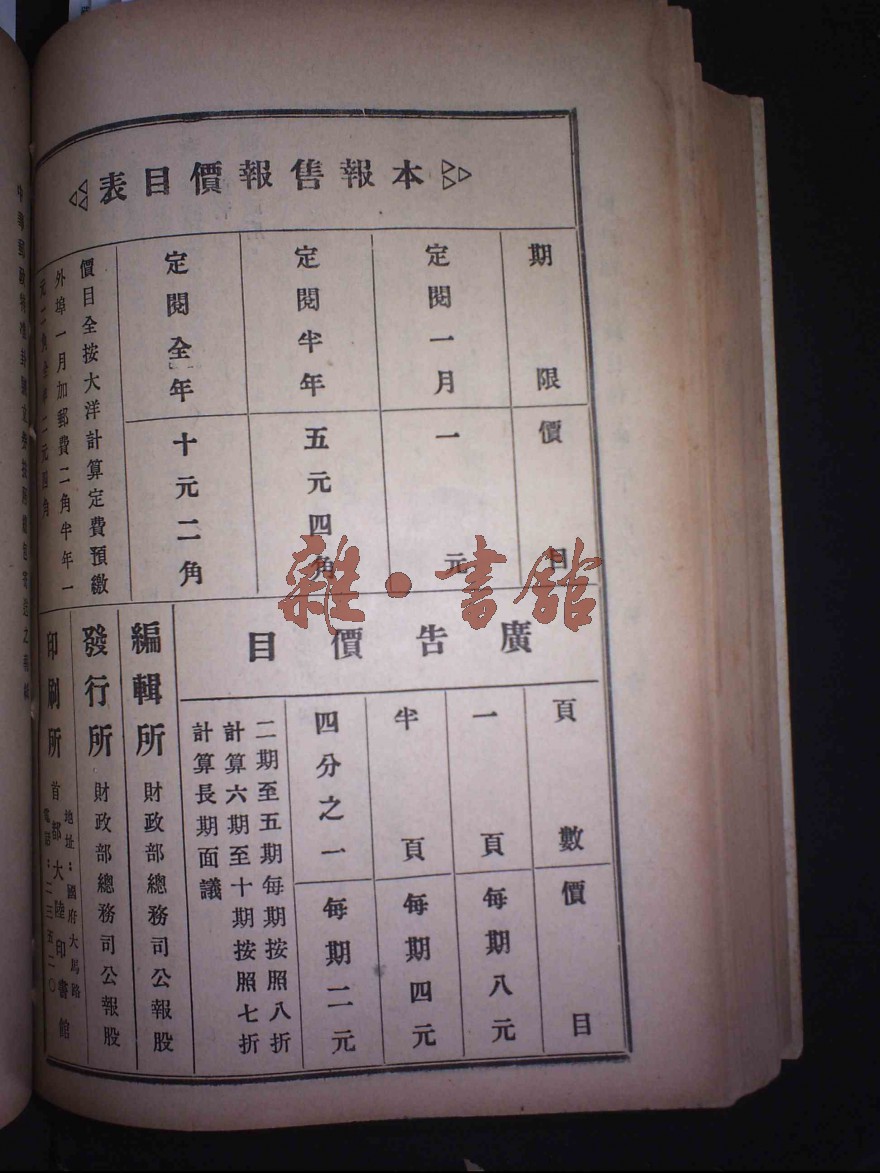 本報售報價目表
期限
價目
定閱一月
一元
定閱半年
五元四角
定閱全年
十元二角
價目全按大洋計算定費預繳
外埠一月加郵費二角半年一
元二角全年二元四角
廣告價目
頁數
價目
一頁
每期八元
半頁
每期四元
四分之一
每期二元
二期至五期每期按照八折
計算六期至十期按照七折
計算長期面議
編輯所 財政部總務司公報股
發行所 財政部總務司公報股
印刷所 首都大陸印書館
地址：國府大馬路
電話：二三五二〇
雜·書館